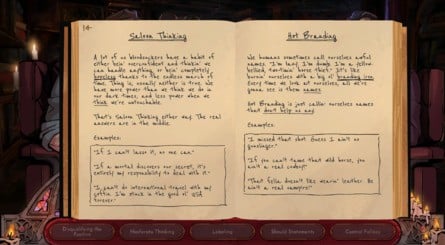 14.
Saloon Thinking
A lot of us bloodsuckers have a habit of
either bein' overconfident and thinkin' we
can handle anything, or bein' completely
hopeless thanks to the endless march of
time. Thing is, usually neither is true. We
have more power than we think we do in
our dark times, and less power when we
think we're untouchable.
That's Saloon Thinking either day. The real
answers are in the middle.
Examples:
"If I can't lasso it, no one can."
"If a mortal discovers our secret, it's
entirely my responsibility to deal with it."
"I can't do international travel with my
coffin. I'm stuck in the good ol' wild
forever."
Hot Branding
We humans sometimes call ourselves awful
names. "I'm lazy, I'm dumb, I'm a
bellied, horse thief." It's like
burnin' ourselves with a big ol' branding iron.
Every time we look at ourselves, all we're
gonna see is them names.
Hot Branding is just callin' ourselves names
that don't help us any.
Examples:
"I missed that shot. Guess I ain't no
gunslinger."
"If you can't tame that wild horse, you
ain't a real cowboy."
"That fella doesn't like wearin' leather. He
ain't a real vampire!"
Disqualifying the
Positive
Moderate Thinking
Labeling
Should Statements
Control Fallacy